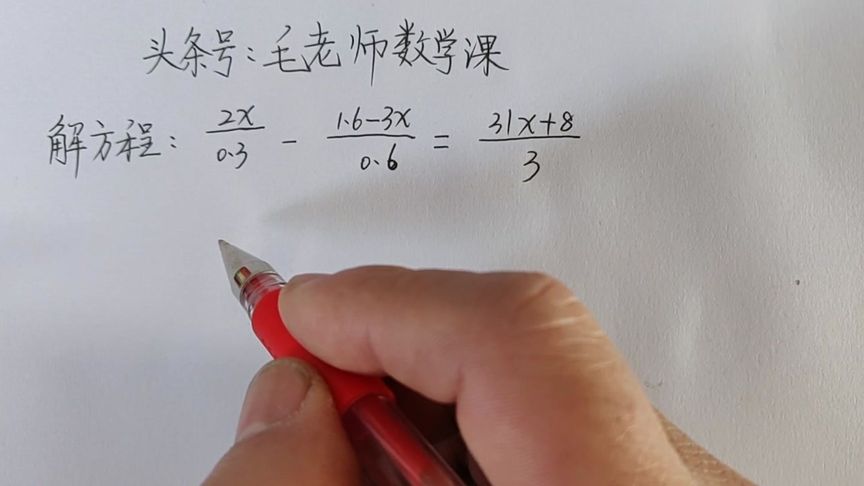 头条号:毛老师数学课
解方程: 2x/0.3 - 1.6-3x/0.6 = 31x+8/3